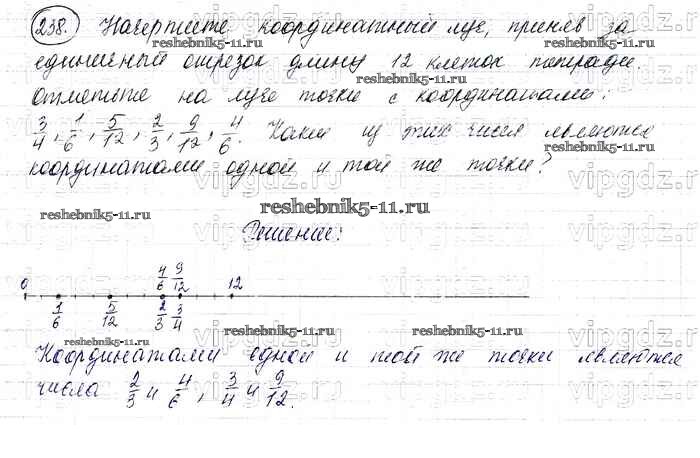 238. Начертите координатный луч, приняв за
единичный отрезок длину 12 клеток тетради.
Отметьте на луче точки с координатами:
3/4, 1/6, 5/12, 2/3, 9/12, 4/6. Какие из этих чисел являются
координатами одной и той же точки?
Решение:
4/6 9/12
0 12
1/6 5/12 2/3 3/4
Координатами одной и той же точки являются
числа 2/3 и 4/6, 3/4 и 9/12.
reshebnik5-11.ru
reshebnik5-11.ru
reshebnik5-11.ru
reshebnik5-11.ru
reshebnik5-11.ru
reshebnik5-11.ru
reshebnik5-11.ru
reshebnik5-11.ru
vipgdz.ru